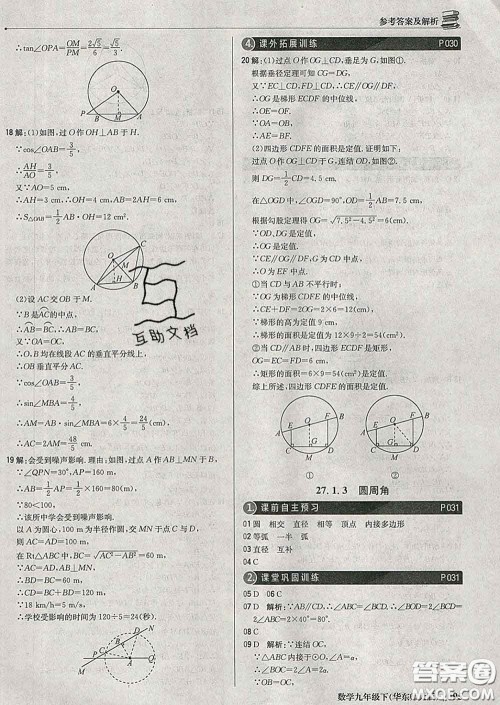 参考答案及解析
∴tan∠OPA=OM/PM=2√5/6=√5/3.
18 解:(1)如图,过 O 作 OH⊥AB 于 H.
∵cos∠OAB=3/5,
∴AH/AO=3/5,
又∵AO=5 cm,
∴AH=3 cm,∴OH=4 cm,∴AB=6 cm,
∴S△OAB=1/2 AB·OH=12 cm².
(2)设 AC 交 OB 于 M.
∵B是AC的中点,
∴AB=BC,∴AB=BC.
又∵OA=OC,
∴O,B 均在线段 AC 的垂直平分线上,
∴OB垂直平分 AC.
∵cos∠OAB=3/5,
∴sin∠MBA=4/5,
∴AM=AB·sin∠MBA=6×4/5=24/5(cm),
∴AC=2AM=48/5 cm.
19 解:会受到噪声影响.理由如下:如图,过点 A 作 AB⊥MN 于 B,
∵∠QPN=30°,AP=160 m,
∴AB=1/2 AP=80 m.
∵80<100,
∴该所中学会受到噪声影响.
以 A 为圆心,100 m 为半径作圆,交 MN 于点 C 与点 D,
则 AC=AD=100 m,
在 Rt△ABC中,BC=√(AC²-AB²)=60 m,
∴BD=BC=60 m,
∴CD=BC+BD=120 m,
∴学校受影响的时间为 120÷5=24(秒).
4 课外拓展训练 P030
20 解:(1)过点 O 作 OG⊥CD,垂足为 G,如图①.
根据垂径定理可知 CG=DG.
又∵EC⊥CD,FD⊥CD,
∴CE∥OG∥DF,
∴OG 是梯形 CDFE 的中位线,
∴OE=OF.
∵OA=OB,
∴AE=BF.
(2)四边形 CDFE 的面积是定值.证明如下:
过点 O 作 OG⊥CD 于 G,连结 OD,如图①.
则 DG=1/2 CD=4.5 cm.
在△OGD 中,∠OGD=90°,OD=1/2 AB=7.5 cm.
根据勾股定理得 OG=√(7.5²-4.5²)=6(cm),
∵OD,DG 是定值,
∴OG是定值.
①当 CD 与 AB 不平行时,
∵OG 是梯形 CDFE 的中位线,
∴CE+DF=2OG=12 cm.
∵梯形的高也是定值 9 cm,
∴梯形的面积是定值 12×9÷2=54(cm²).
②当 CD∥AB 时,四边形 CDFE 是矩形,
OG=EC=FD=6 cm,
∴矩形的面积=6×9=54(cm²)是定值.
综上所述,四边形 CDFE 的面积是定值.
① ②
27.1.3 圆周角
1 课前自主预习 P031
01 圆 相交 直径 相等 直角 90° 直径
02 等弧 一半 等弧
03 直径 互补
2 课堂巩固训练 P031
05 D 06 C
07 D 解析:∵AB∥CD,∴∠ABC=∠BCD,∴∠BOD=2∠BCD=
2∠ABC=2×40°=80°.
08 C
09 D 解析:∵连结 OC,
互助文档